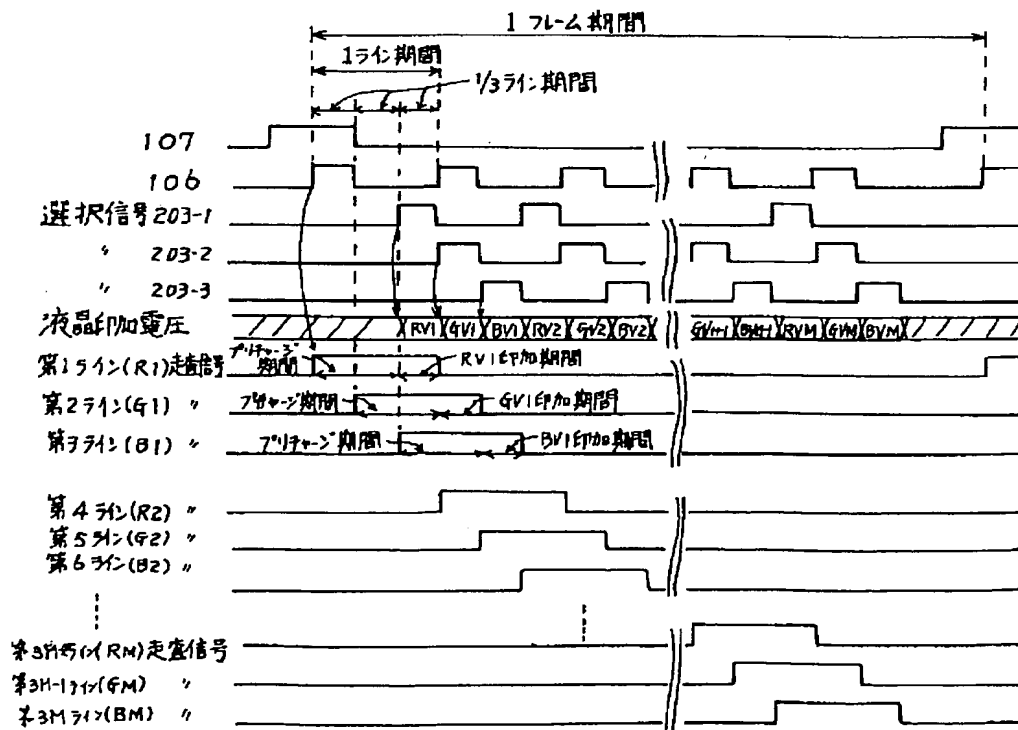 1 フレーム期間
1ライン期間
1/3ライン期間
107
106
選択信号203-1
〃 203-2
〃 203-3
液晶印加電圧
RV1 GV1 BV1 RV2 GV2 BV2
RVM GVM BVM
第1ライン(R1)走査信号
プリチャージ期間
RV1印加期間
第2ライン(G1) 〃
プリチャージ期間
GV1印加期間
第3ライン(B1) 〃
プリチャージ期間
BV1印加期間
第4ライン(R2) 〃
第5ライン(G2) 〃
第6ライン(B2) 〃
ライン(RM)走査信号
第3M-1ライン(GM) 〃
第3Mライン(BM) 〃